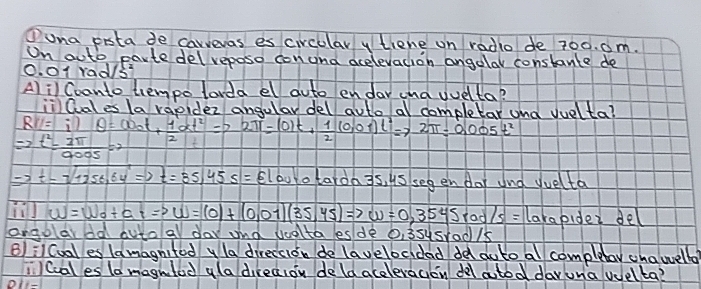 ① Una pista de carreras es circular y tiene un radio de 700.0m.
Un auto parte del reposo con una aceleración angular constante de
0.01 rad/s²
A) i) Cuanto tiempo tarda el auto en dar una vuelta?
ii) Cual es la rapidez angular del auto al completar una vuelta?
R//= i) θ=ω₀t+½αt² => 2π=(0)t+½(0,01)t² => 2π=0.005t²
=> t²=2π/0.005 =>
=> t=√1256,64 => t=35,45 s = El auto tarda 35,45 seg en dar una vuelta
ii) ω=ω₀+αt => ω=(0)+(0,01)(35,45) => ω=0,3545 rad/s = La rapidez del
angular del auto al dar una vuelta es de 0,3545 rad/s
B) i) Cual es la magnitud y la dirección de la velocidad del auto al completar una vuelta
ii) Cual es la magnitud y la dirección de la aceleración del auto al dar una vuelta?
R//=